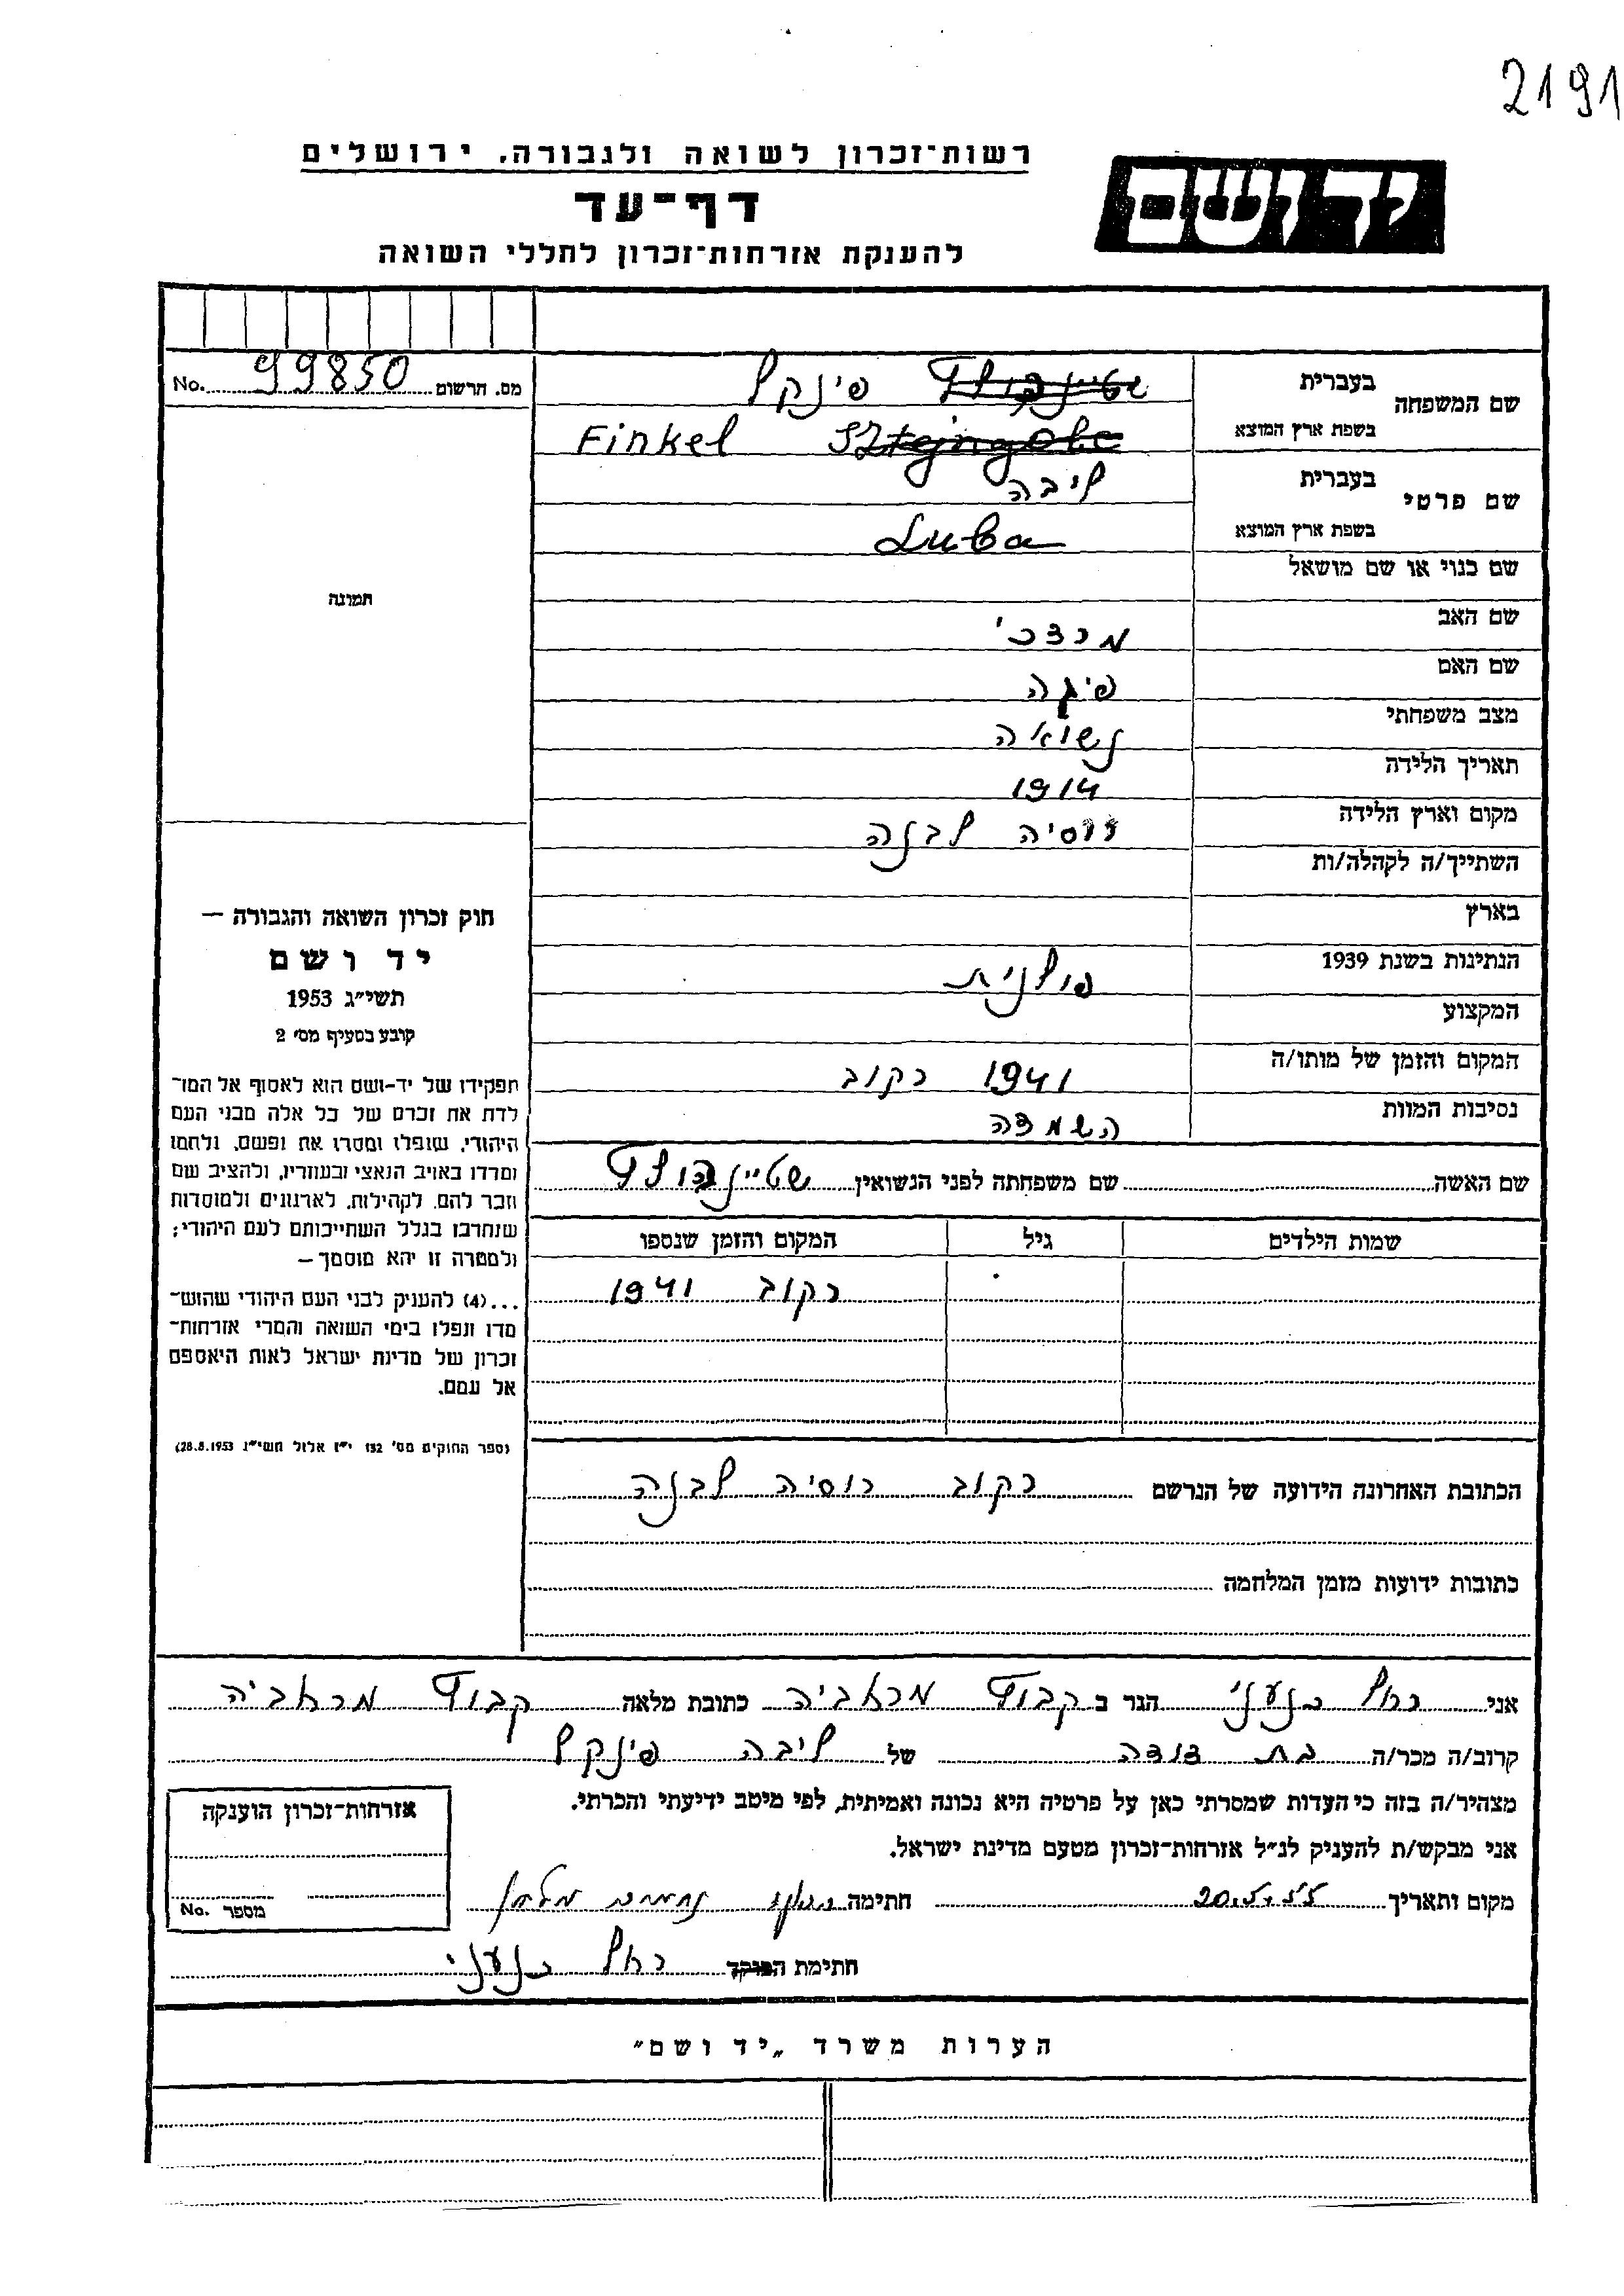 2191
רשות־זכרון לשואה ולגבורה, ירושלים
יד ושם
דף־עד
להענקת אזרחות־זכרון לחללי השואה
מס. הרשום 99850 No.
תמונה
חוק זכרון השואה והגבורה —
יד ושם
תשי״ג 1953
קובע בסעיף מס׳ 2
תפקידו של יד-ושם הוא לאסוף אל המו־
לדת את זכרם של כל אלה מבני העם
היהודי, שנפלו ומסרו את נפשם, נלחמו
ומרדו באויב הנאצי ובעוזריו, ולהציב שם
וזכר להם, לקהילות, לארגונים ולמוסדות
שנחרבו בגלל השתייכותם לעם היהודי;
ולמטרה זו יהא מוסמך —
...(4) להעניק לבני העם היהודי שהוש־
מדו ונפלו בימי השואה והמרי אזרחות־
זכרון של מדינת ישראל לאות היאספם
אל עמם.
(ספר החוקים מס׳ 132 י״ז אלול תשי״ג 28.8.1953)
שם המשפחה
בעברית שטיינגולד פינקל
בשפת ארץ המוצא Finkel
שם פרטי
בעברית ליבה
בשפת ארץ המוצא Luba
שם כנוי או שם מושאל
שם האב מרדכי
שם האם פיגה
מצב משפחתי נשואה
תאריך הלידה 1914
מקום וארץ הלידה רוסיה לבנה
השתייך/ה לקהלה/ות
בארץ
הנתינות בשנת 1939 פולנית
המקצוע
המקום והזמן של מותו/ה 1941 רקוב
נסיבות המוות השמדה
שם האשה שם משפחתה לפני הנשואין שטיינגולד
שמות הילדים גיל המקום והזמן שנספו
רקוב 1941
הכתובת האחרונה הידועה של הנרשם רקוב רוסיה לבנה
כתובות ידועות מזמן המלחמה
אני רחל כנעני הגר ב קבוצ מרחביה כתובת מלאה קבוצ מרחביה
קרוב/ה מכר/ה בת דודה של ליבה פינקל
מצהיר/ה בזה כי העדות שמסרתי כאן על פרטיה היא נכונה ואמיתית, לפי מיטב ידיעתי והכרתי.
אני מבקש/ת להעניק לנ״ל אזרחות־זכרון מטעם מדינת ישראל.
מקום ותאריך 20.5.55 חתימה
חתימת רחל כנעני
אזרחות־זכרון הוענקה
מספר No.
הערות משרד „יד ושם״